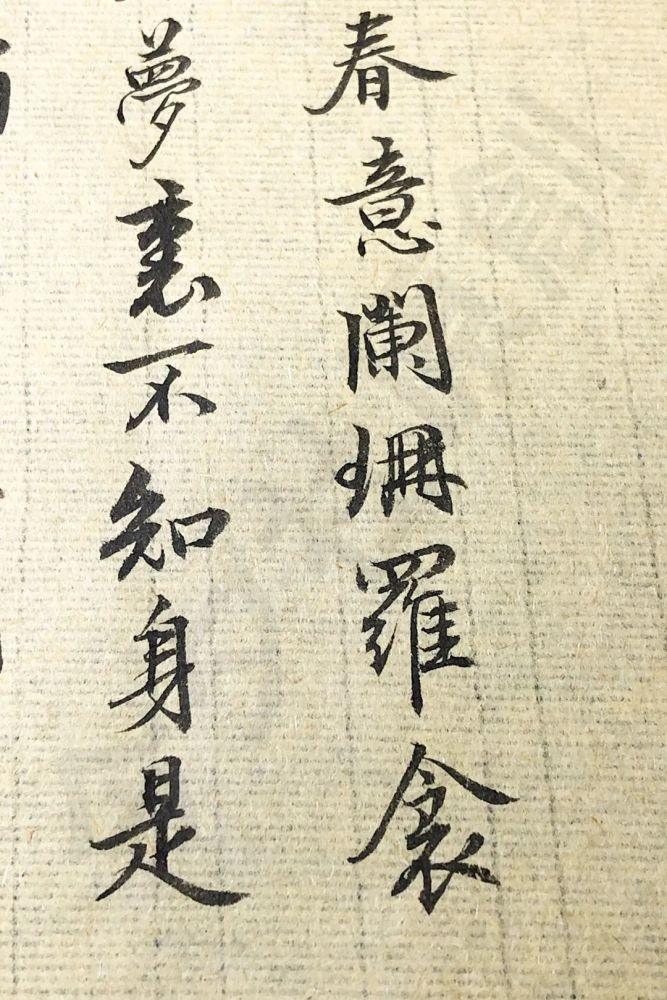 春意闌珊羅衾
夢裏不知身是